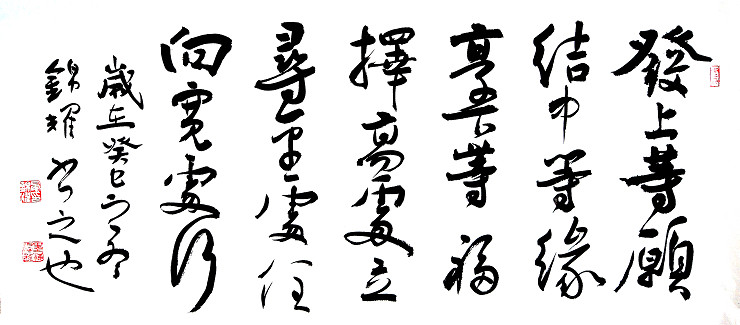 發上等願
結中等緣
享下等福
擇高處立
尋平處住
向寬處行
歲在癸巳之冬
錦耀書之也